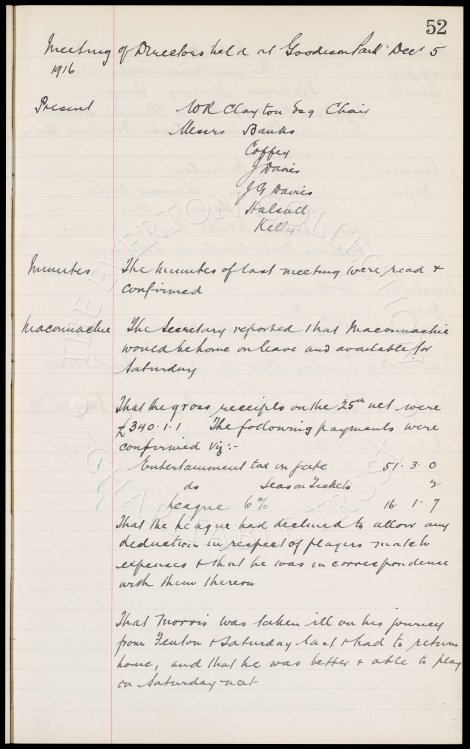 52
Meeting of Directors held at Goodison Park Decr 5
1916
Present W R Clayton Esq Chair
Messrs Banks
Coffey
J Davies
J G Davies
Halsall
Kelly
Minutes The Minutes of last meeting were read &
confirmed
Maconnachie The Secretary reported that Maconnachie
would be home on leave and available for
Saturday
That the gross receipts on the 25th ult were
£340.1.1. The following payments were
confirmed viz:-
Entertainment tax in gate 51.3.0
do Season Tickets 2
League 6% 16.1.7
That the League had declined to allow any
deduction in respect of players match
expenses & that he was in correspondence
with them thereon
That Morris was taken ill on his journey
from Fenton & Saturday last & had to return
home, and that he was better & able to play
on Saturday next
THE EVERTON COLLECTION
CHARITABLE TRUST